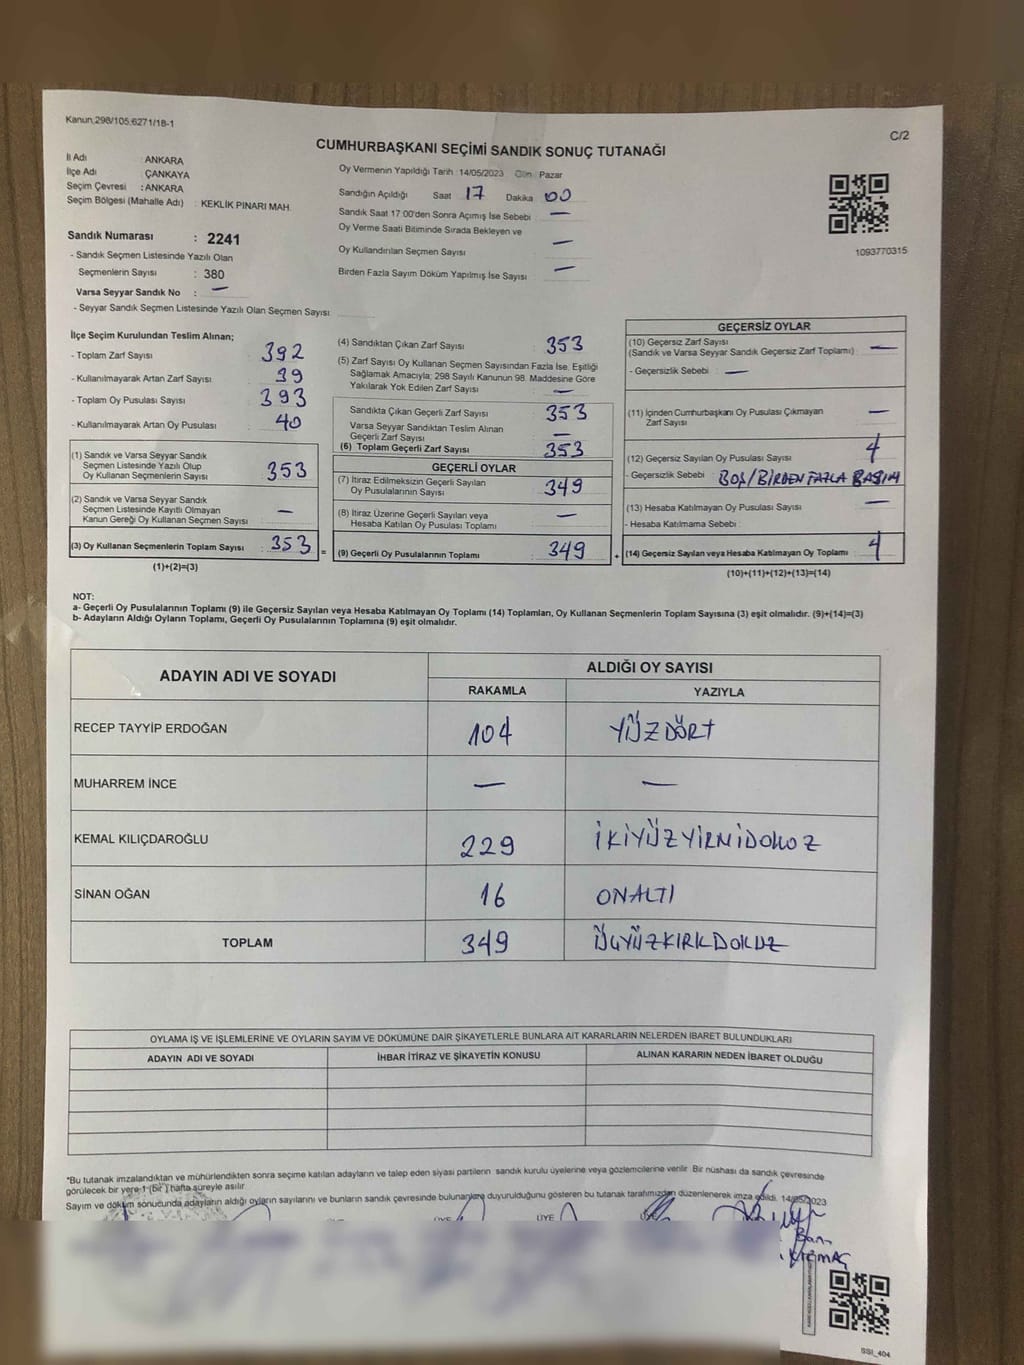 Kanun,298/105,6271/18-1
C/2
CUMHURBAŞKANI SEÇİMİ SANDIK SONUÇ TUTANAĞI
İl Adı : ANKARA
İlçe Adı : ÇANKAYA
Seçim Çevresi : ANKARA
Seçim Bölgesi (Mahalle Adı) : KEKLİK PINARI MAH.
Oy Vermenin Yapıldığı Tarih : 14/05/2023 Gün : Pazar
Sandığın Açıldığı Saat 17 Dakika 00
Sandık Saat 17:00'den Sonra Açımış İse Sebebi : —
Oy Verme Saati Bitiminde Sırada Bekleyen ve
Oy Kullandırılan Seçmen Sayısı —
Birden Fazla Sayım Döküm Yapılmış İse Sayısı —
1093770315
Sandık Numarası : 2241
- Sandık Seçmen Listesinde Yazılı Olan
Seçmenlerin Sayısı : 380
Varsa Seyyar Sandık No : —
- Seyyar Sandık Seçmen Listesinde Yazılı Olan Seçmen Sayısı:
İlçe Seçim Kurulundan Teslim Alınan;
- Toplam Zarf Sayısı : 392
- Kullanılmayarak Artan Zarf Sayısı : 39
- Toplam Oy Pusulası Sayısı : 393
- Kullanılmayarak Artan Oy Pusulası : 40
(1) Sandık ve Varsa Seyyar Sandık
Seçmen Listesinde Yazılı Olup
Oy Kullanan Seçmenlerin Sayısı : 353
(2) Sandık ve Varsa Seyyar Sandık
Seçmen Listesinde Kayıtlı Olmayan
Kanun Gereği Oy Kullanan Seçmen Sayısı : —
(3) Oy Kullanan Seçmenlerin Toplam Sayısı : 353 =
(1)+(2)=(3)
(4) Sandıktan Çıkan Zarf Sayısı : 353
(5) Zarf Sayısı Oy Kullanan Seçmen Sayısından Fazla İse, Eşitliği
Sağlamak Amacıyla; 298 Sayılı Kanunun 98. Maddesine Göre
Yakılarak Yok Edilen Zarf Sayısı : —
Sandıkta Çıkan Geçerli Zarf Sayısı : 353
Varsa Seyyar Sandıktan Teslim Alınan
Geçerli Zarf Sayısı : —
(6) Toplam Geçerli Zarf Sayısı : 353
GEÇERLİ OYLAR
(7) İtiraz Edilmeksizin Geçerli Sayılan
Oy Pusulasının Sayısı : 349
(8) İtiraz Üzerine Geçerli Sayılan veya
Hesaba Katılan Oy Pusulası Toplamı : —
(9) Geçerli Oy Pusulalarının Toplamı : 349 +
GEÇERSİZ OYLAR
(10) Geçersiz Zarf Sayısı : —
(Sandık ve Varsa Seyyar Sandık Geçersiz Zarf Toplamı)
- Geçersizlik Sebebi : —
(11) İçinden Cumhurbaşkanı Oy Pusulası Çıkmayan : —
Zarf Sayısı
(12) Geçersiz Sayılan Oy Pusulası Sayısı : 4
- Geçersizlik Sebebi : BOŞ/BİRDEN FAZLA BASIM
(13) Hesaba Katılmayan Oy Pusulası Sayısı : —
- Hesaba Katılmama Sebebi :
(14) Geçersiz Sayılan veya Hesaba Katılmayan Oy Toplamı : 4
(10)+(11)+(12)+(13)=(14)
NOT:
a- Geçerli Oy Pusulalarının Toplamı (9) ile Geçersiz Sayılan veya Hesaba Katılmayan Oy Toplamı (14) Toplamları, Oy Kullanan Seçmenlerin Toplam Sayısına (3) eşit olmalıdır. (9)+(14)=(3)
b- Adayların Aldığı Oyların Toplamı, Geçerli Oy Pusulalarının Toplamına (9) eşit olmalıdır.
ADAYIN ADI VE SOYADI
ALDIĞI OY SAYISI
RAKAMLA YAZIYLA
RECEP TAYYİP ERDOĞAN 104 YÜZDÖRT
MUHARREM İNCE — —
KEMAL KILIÇDAROĞLU 229 İKİYÜZYİRMİDOKUZ
SİNAN OĞAN 16 ONALTI
TOPLAM 349 ÜÇYÜZKIRKDOKUZ
OYLAMA İŞ VE İŞLEMLERİNE VE OYLARIN SAYIM VE DÖKÜMÜNE DAİR ŞİKAYETLERLE BUNLARA AİT KARARLARIN NELERDEN İBARET BULUNDUKLARI
ADAYIN ADI VE SOYADI İHBAR İTİRAZ VE ŞİKAYETİN KONUSU ALINAN KARARIN NEDEN İBARET OLDUĞU
*Bu tutanak imzalandıktan ve mühürlendikten sonra seçime katılan adayların ve talep eden siyasi partilerin sandık kurulu üyelerine veya gözlemcilerine verilir. Bir nüshası da sandık çevresinde
görülecek bir yere 1 (bir ) hafta süreyle asılır.
Sayım ve döküm sonucunda adayların aldığı oyların sayılarını ve bunların sandık çevresinde bulunanlara duyurulduğunu gösteren bu tutanak tarafımızdan düzenlenerek imza edildi. 14/05/2023
ÜYE ÜYE ÜYE
SSI_404